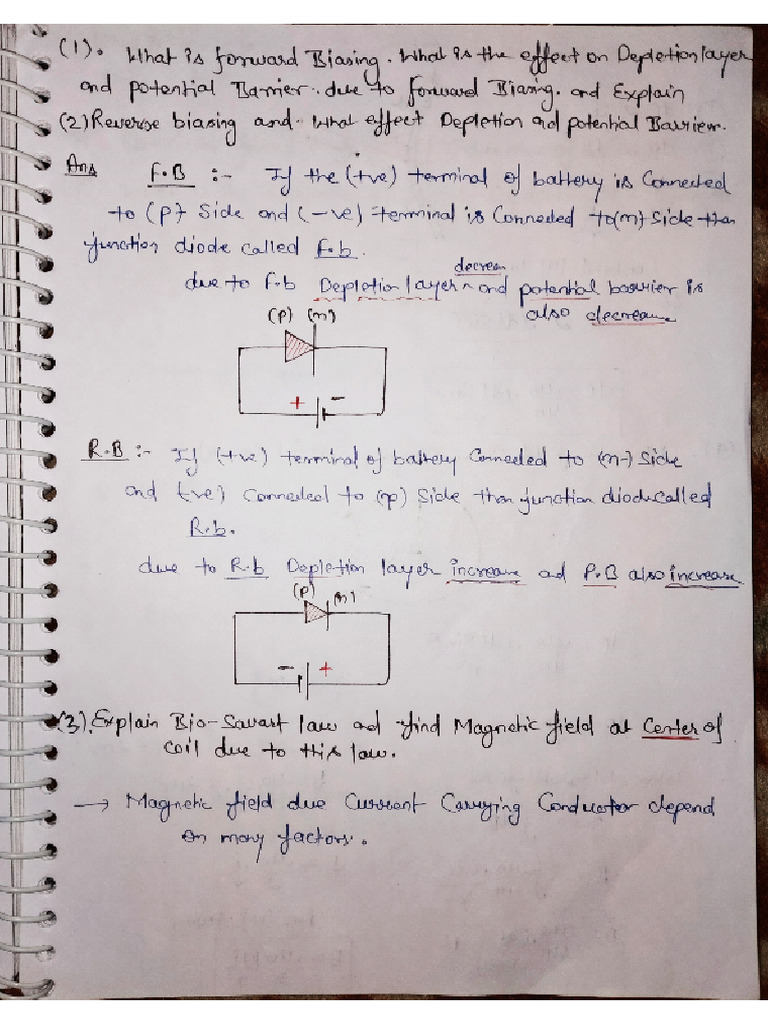 (1). What is forward Biasing. What is the effect on Depletion layer
and potential Barrier. due to forward Biasing. and Explain
(2) Reverse biasing and what effect Depletion and potential Barrier.
Ans F.B :- If the (+ve) terminal of battery is Connected
to (P) Side and (-ve) terminal is Connected to (n) Side then
junction diode called F.b.
decrease
due to F.b Depletion layer ^ and potential barrier is
also decrease
(P) (n)
+ -
R.B :- If (+ve) terminal of battery Connected to (n) Side
and (-ve) Connected to (p) Side then junction diode called
R.b.
due to R.b Depletion layer increase ad P.B also increase
(P) (n)
- +
(3). Explain Bio-Savart law ad find Magnetic field at Center of
coil due to this law.
→ Magnetic field due Current Carrying Conductor depend
on many factors.